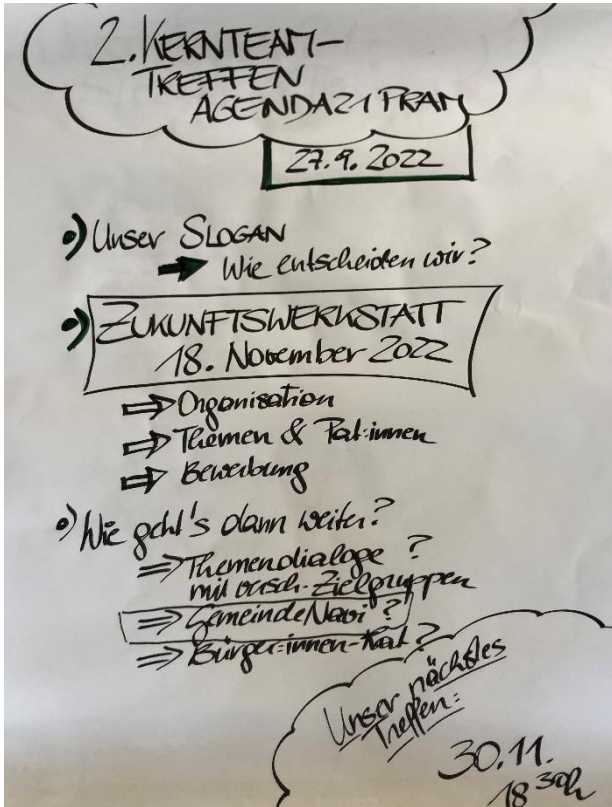 2. KERNTEAM-
TREFFEN
AGENDA21 PRAM
27.9.2022
•) Unser SLOGAN
➔ Wie entscheiden wir?
•) ZUKUNFTSWERKSTATT
18. November 2022
⇒ Organisation
⇒ Themen & Pat:innen
⇒ Bewerbung
•) Wie geht's dann weiter?
⇒ Themendialoge ?
mit versch. Zielgruppen
⇒ GemeindeNavi ?
⇒ Bürger:innen-Rat ?
Unser nächstes
Treffen:
30.11.
18 30h